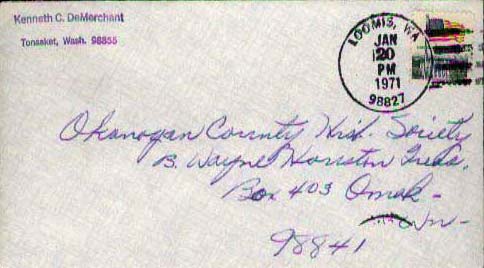 Kenneth C. DeMerchant
Tonasket, Wash. 98855
LOOMIS, WA
JAN
20
PM
1971
98827
Okanogan County Hist. Society
B. Wayne Houston Treas.
Box 403 Omak-
Wn-
98841